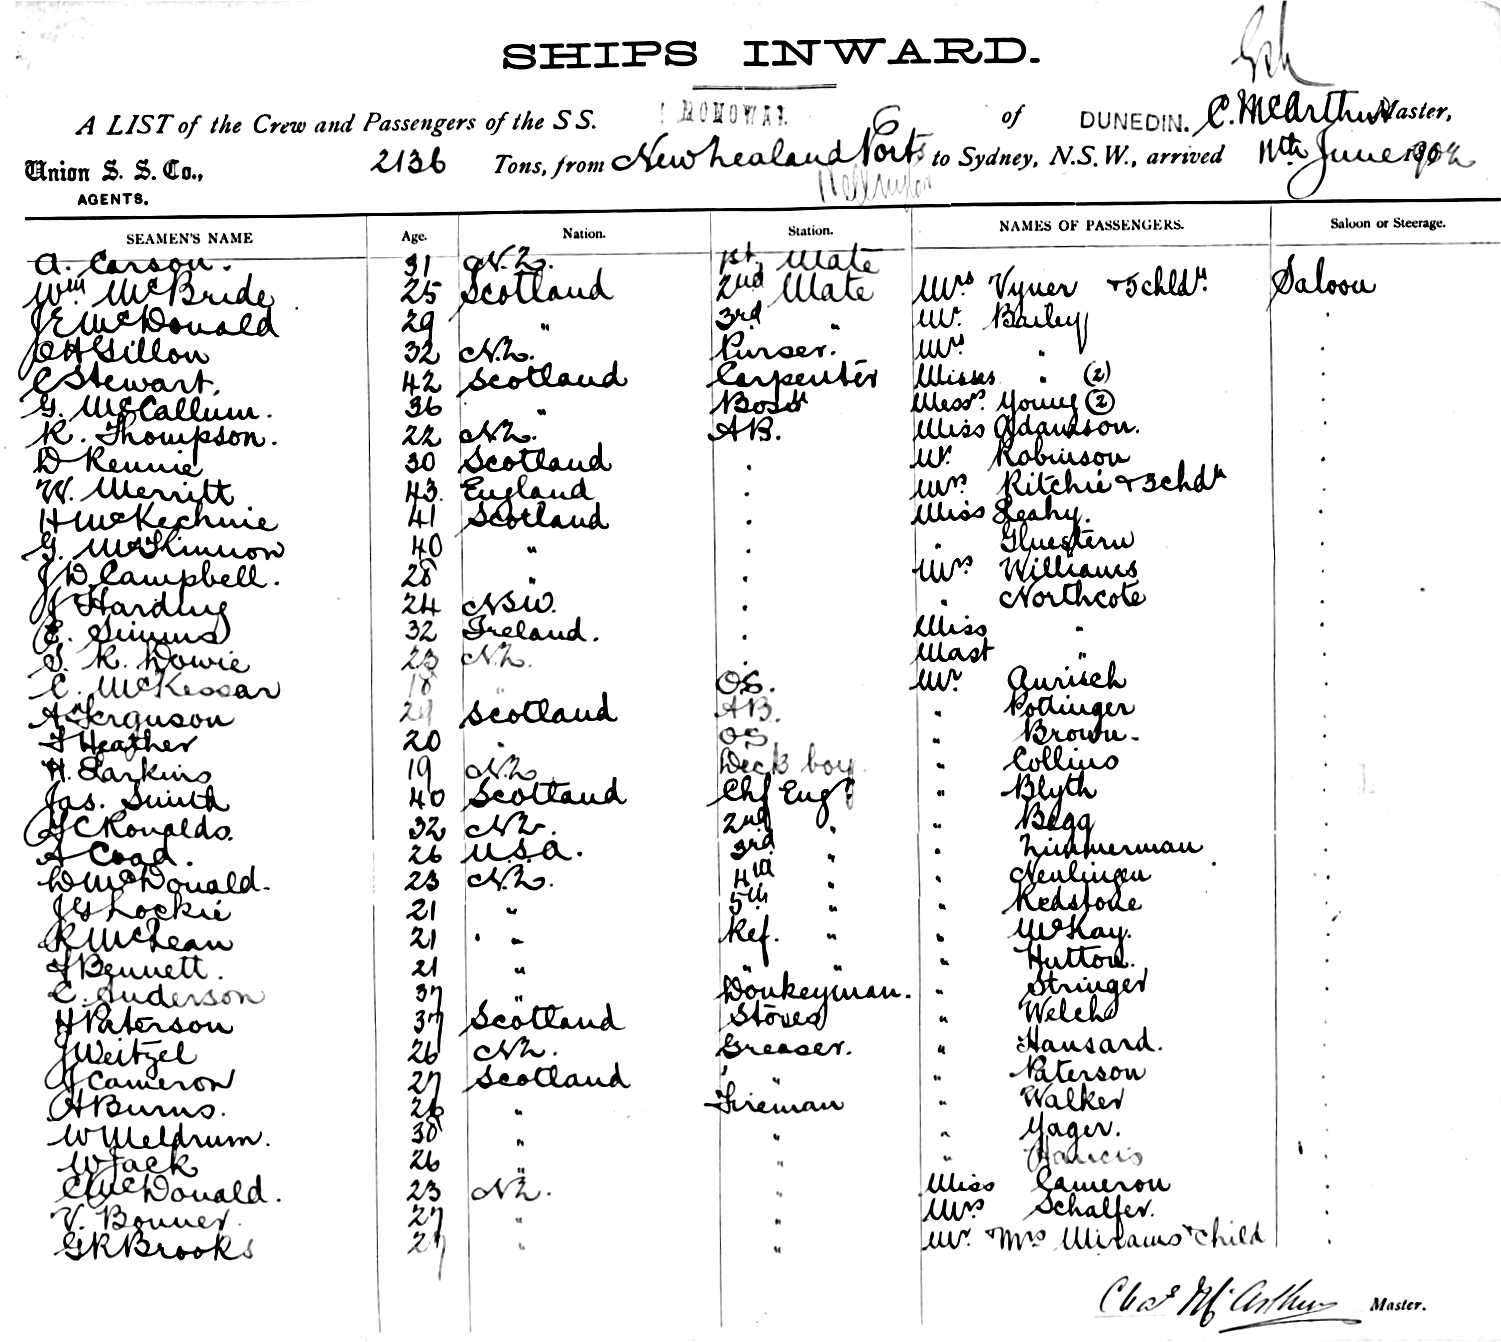 SHIPS INWARD.
A LIST of the Crew and Passengers of the SS. MONOWAI of DUNEDIN. C. McArthur Master,
Union S. S. Co., 2136 Tons, from New Zealand Ports to Sydney, N.S.W., arrived 11th June 1902
Wellington
AGENTS.
SEAMEN'S NAME Age. Nation. Station. NAMES OF PASSENGERS. Saloon or Steerage.
A. Carson. 31 N.Z. 1st. Mate
Wm McBride 25 Scotland 2nd Mate Mrs Vyner + 3 chldn. Saloon
J E McDonald 29 " 3rd " Mr. Bailey .
Gillon 32 N.Z. Purser. Mrs " .
C Stewart. 42 Scotland Carpenter Misses " (2) .
G. McCallum. 36 " Bosn Messrs. Young (2) .
R. Thompson. 22 N.Z. AB. Miss Adamson. .
D Rennie 30 Scotland . Mr. Robinson .
W. Merritt 43. England . Mrs. Ritchie + 3 chdn .
H McKechnie 41 Scotland . Miss Leahy. .
G. McKinnon 40 " . " Gluestern .
J D. Campbell. 28 " . Mrs Williams .
J Harding 24 NSW. . " Northcote .
E. Simms 32 Ireland. . Miss " .
S. R. Dowie 23 N.Z. . Mast " .
C. McKessar 18 " OS. Mr. Aurisch .
A Ferguson 29 Scotland AB. " Pottinger .
T Heather 20 " OS " Brown. .
H. Larkins 19 N.Z. Deck boy. " Collins .
Jas. Smith 40 Scotland Chf Engr " Blyth .
C Ronalds. 32 N.Z. 2nd " " Begg .
A Coad. 26 U.S.A. 3rd " " Zimmerman .
D McDonald. 23 N.Z. 4th " " .
J G Lockie 21 " 5th " " Redstone .
R McLean 21 " Ref. " " McKay. .
J Bennett. 21 " " " " Hutton. .
C. Anderson 37 " Donkeyman. " Stringer .
H Paterson 37 Scotland Stores " Welch .
J Weitzel 26 N.Z. Greaser. " Hansard. .
J Cameron 27 Scotland " " Paterson .
A Burns. 26 " Fireman " Walker .
W Meldrum. 38 " " " Yager. .
W Jack 26 " " " Francis .
C McDonald. 23 N.Z. " Miss Cameron .
V. Bonner. 27 " " Mrs Schalfer. .
G R Brooks 27 " " Mr. + Mrs Mirams + child .
Chas McArthur Master.